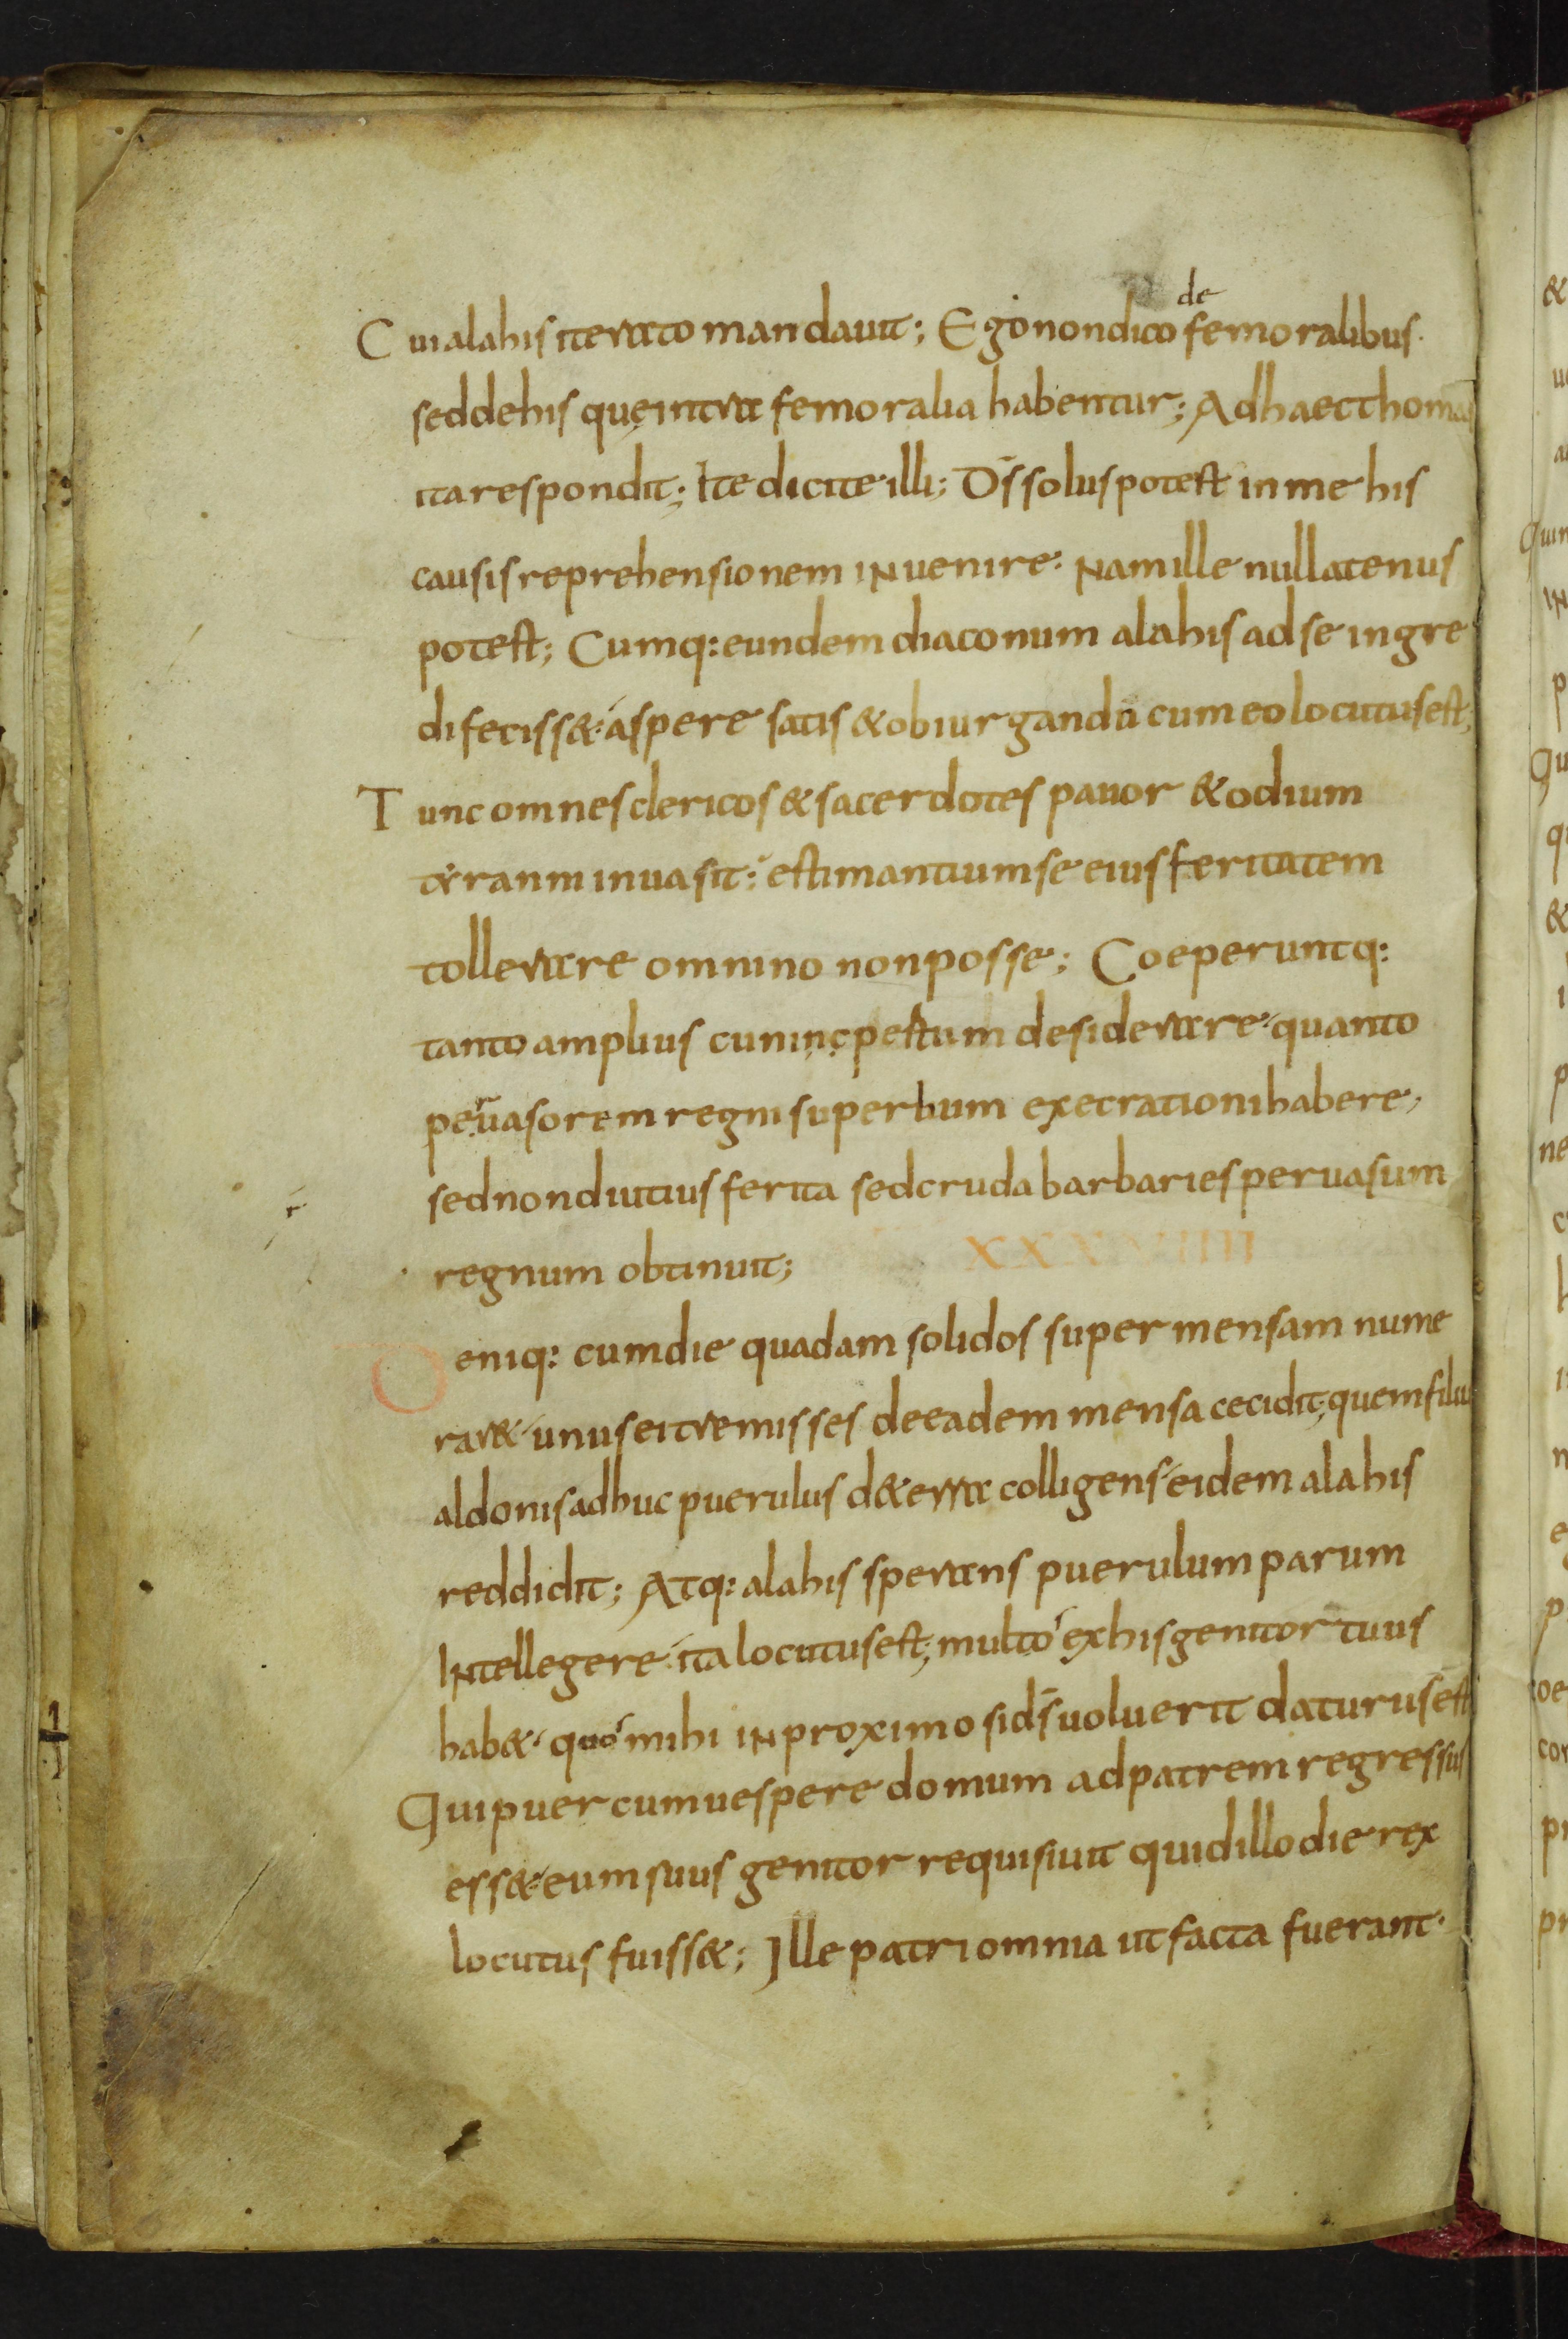 Cui alahis iterato mandauit; Ego non dico de femoralibus.
sed de his quę intra femoralia habentur; Ad haec thomas
ita respondit; Ite dicite illi; Ds̄ solus potest in me his
causis reprehensionem inuenire. Nam ille nullatenus
potest; Cumq: eundem diaconum alahis ad se ingre
di feciss&. aspere satis & obiurgandū cum eo locutus est;
Tunc omnes clericos & sacerdotes pauor & odium
tẏranni inuasit; estimantium se eius feritatem
tollerare omnino non posse; Coeperuntq:
tanto amplius cunincpęstum desiderare. quanto
peruasorem regni superbum execrationi habere,
sed non diutius ferita sed cruda barbaries peruasum
regnum obtinuit; XXXVIIII
Deniq: cum die quadam solidos super mensam nume
rar&. unus ei tremisses de eadem mensa cecidit; quem filiu
aldonis adhuc puerulus de terra colligens. eidem alahis
reddidit; Atq: alahis sperans puerulum parum
Intellegere. ita locutus est; multo ex his genitor tuus
hab&. quo mihi in proximo si ds̄ uoluerit daturus est
Qui puer cum uespere domum ad patrem regressus
ess&. eum suus genitor requisiuit quid illo die rex
locutus fuiss&; Ille patri omnia ut facta fuerant.